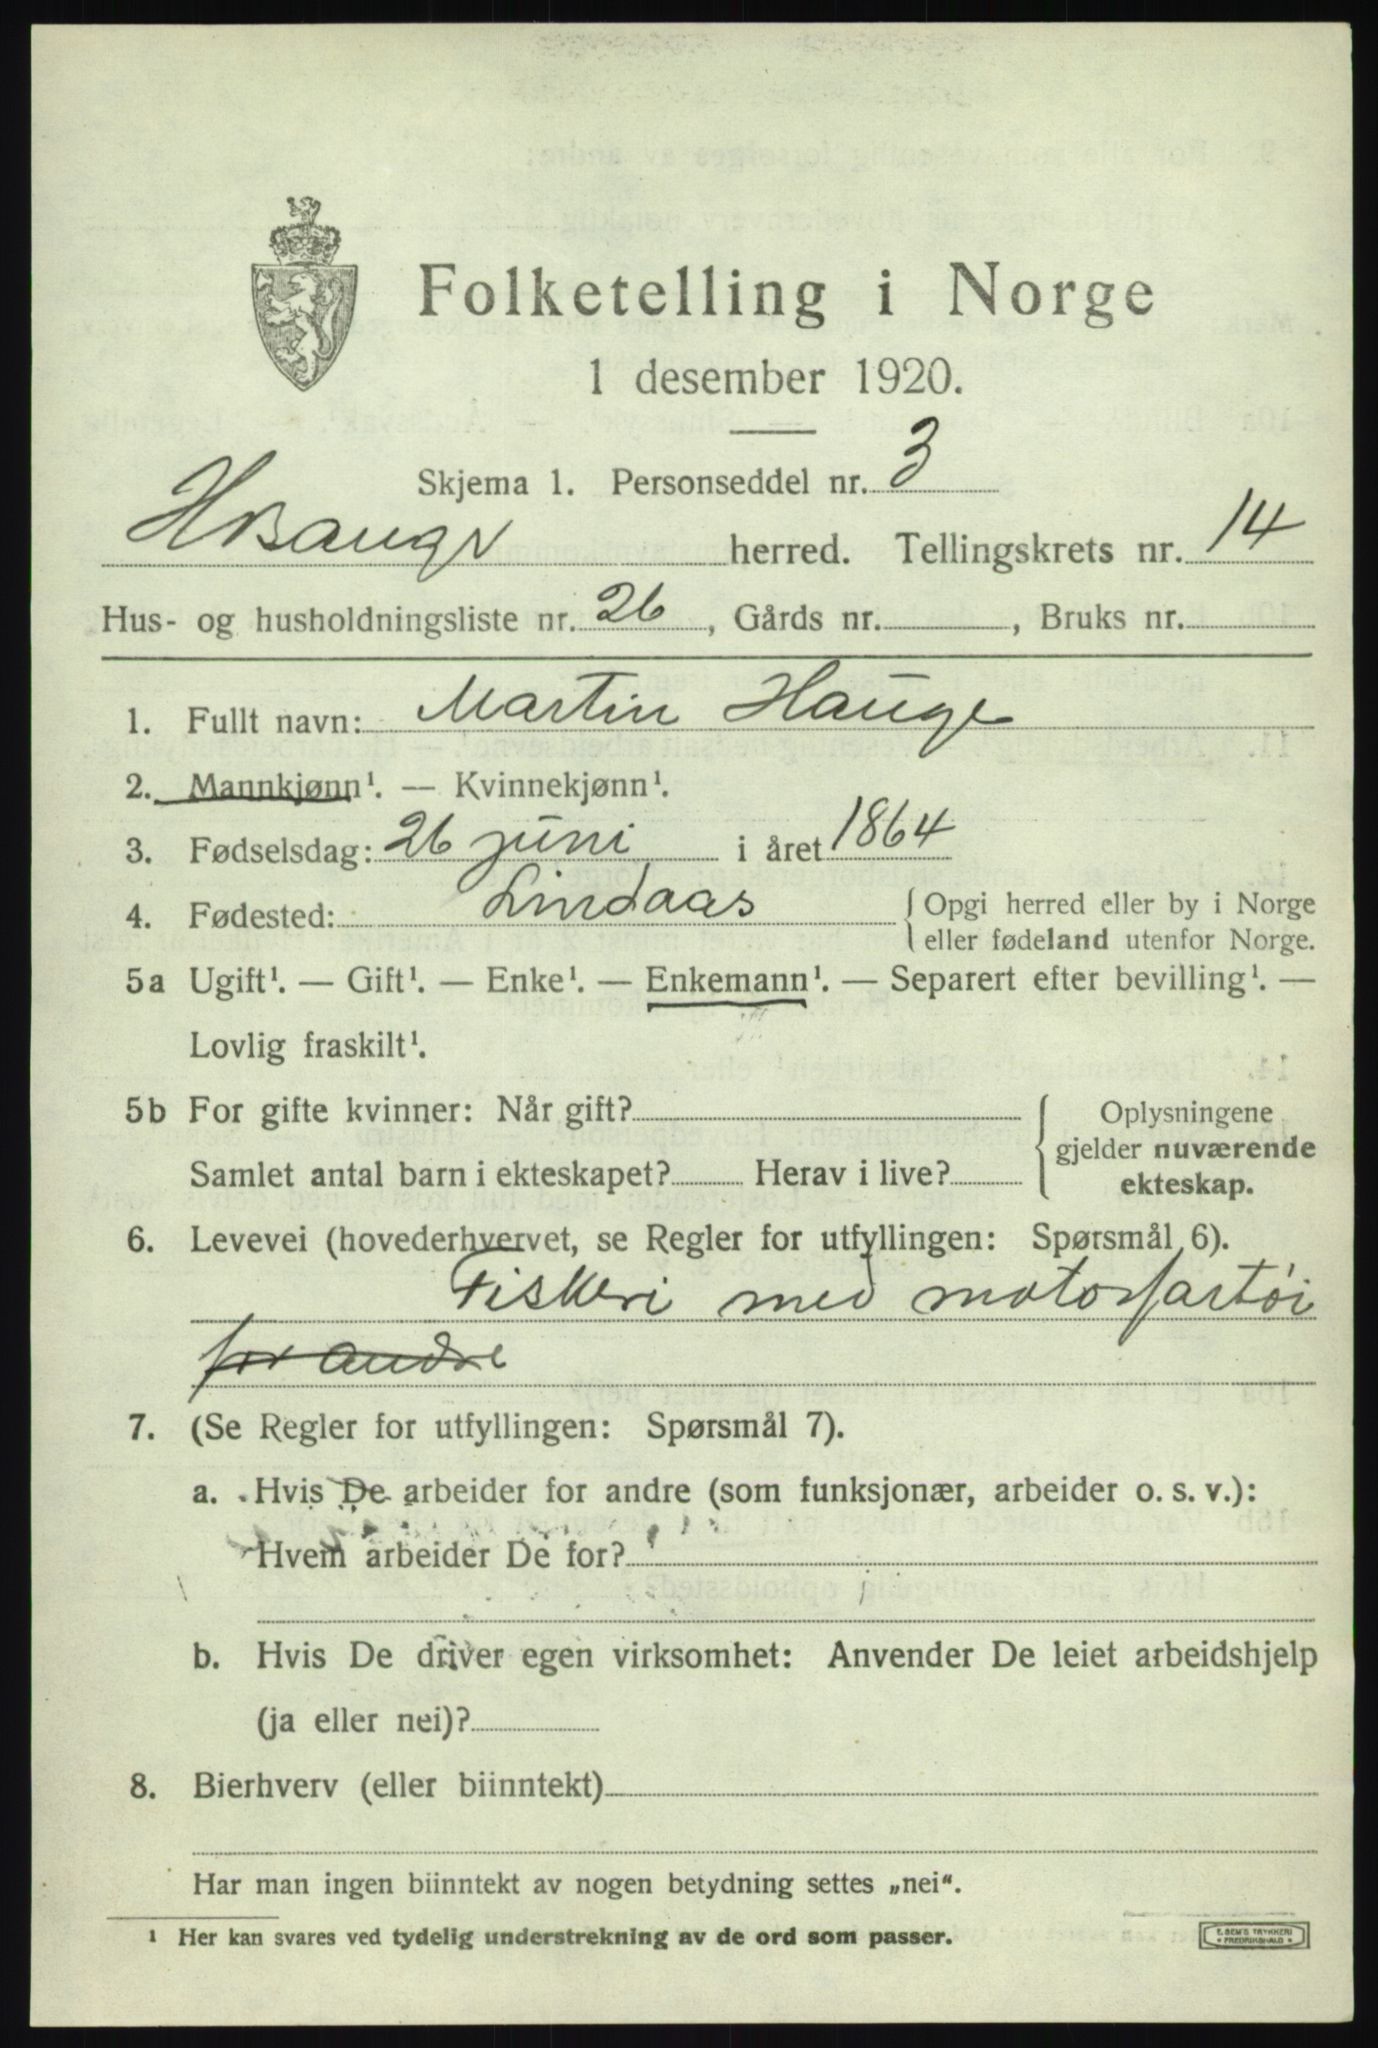 Folketelling i Norge
1 desember 1920.
Skjema 1. Personseddel nr. 3
herred. Tellingskrets nr. 14
Hus- og husholdningsliste nr. 26, Gårds nr. , Bruks nr.
1. Fullt navn: Martin Hauge
2. Mannkjønn¹. — Kvinnekjønn¹.
3. Fødselsdag: 26 juni i året 1864
4. Fødested: Lindaas { Opgi herred eller by i Norge
eller fødeland utenfor Norge.
5a Ugift¹. — Gift¹. — Enke¹. — Enkemann¹. — Separert efter bevilling¹. —
Lovlig fraskilt¹.
5b For gifte kvinner: Når gift? { Oplysningene
gjelder nuværende
Samlet antal barn i ekteskapet? Herav i live? ekteskap.
6. Levevei (hovederhvervet, se Regler for utfyllingen: Spørsmål 6).
Fiskeri med motorfartöi
for andre
7. (Se Regler for utfyllingen: Spørsmål 7).
a. Hvis De arbeider for andre (som funksjonær, arbeider o. s. v.):
Hvem arbeider De for?
b. Hvis De driver egen virksomhet: Anvender De leiet arbeidshjelp
(ja eller nei)?
8. Bierhverv (eller biinntekt)
Har man ingen biinntekt av nogen betydning settes „nei“.
¹ Her kan svares ved tydelig understrekning av de ord som passer.
E. SEM'S TRYKKERI
FREDRIKSHALD